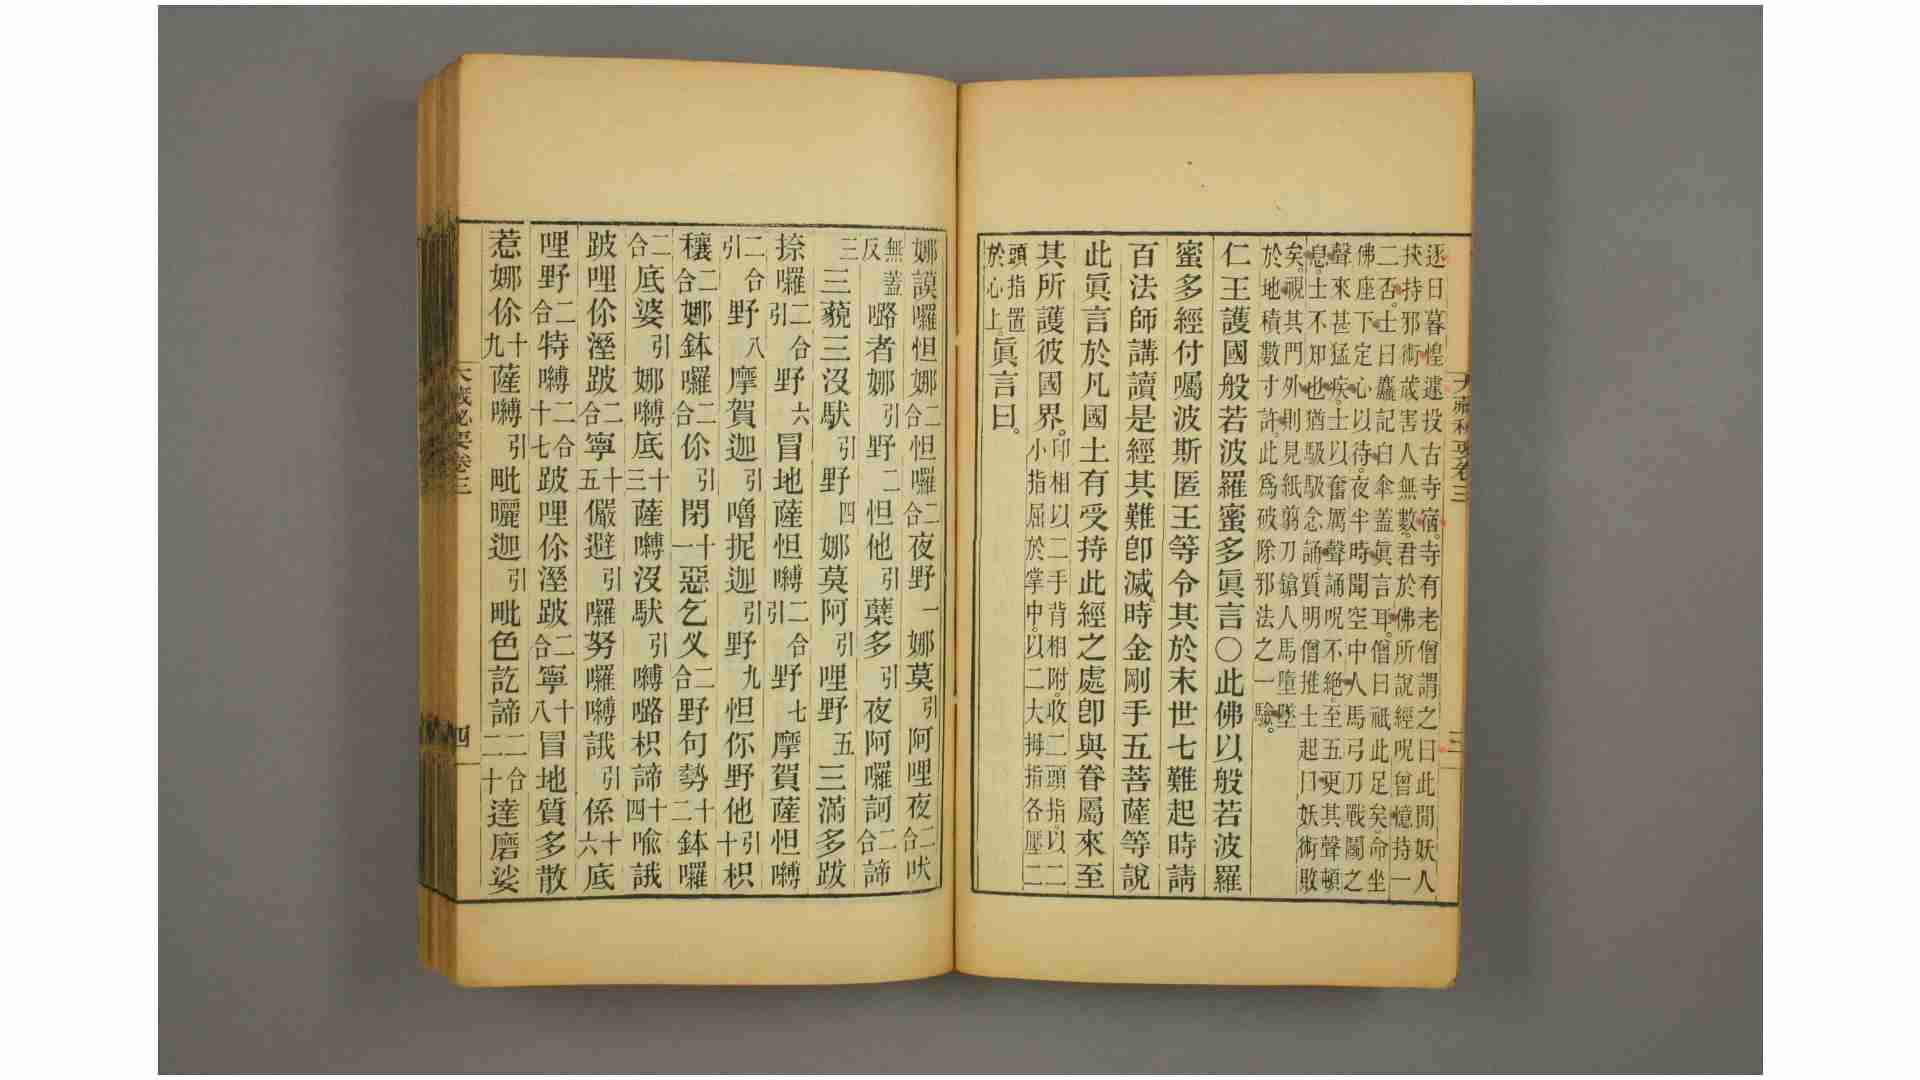 逐日暮惶遽投古寺宿。寺有老僧謂之曰此閒妖人
挾持邪術戕害人無數。君於佛所說經呪曾憶持一
二否。士曰麤記白傘蓋眞言耳。僧曰祇此足矣。命坐
佛座下定心以待。夜半時聞空中人馬弓刀戰鬭之
聲來甚猛疾。士以奮厲聲誦呪不絕至五更其聲頓
息。士不知也猶圾圾念誦。質明僧推士起曰妖術敗
矣。視其門外則見紙翦刀鎗人馬墮墜
於地積數寸許。此爲破除邪法之一驗。
仁王護國般若波羅蜜多眞言〇此佛以般若波羅
蜜多經付囑波斯匿王等令其於末世七難起時請
百法師講讀是經其難卽滅。時金剛手五菩薩等說
此眞言於凡國土有受持此經之處卽與眷屬來至
其所護彼國界。印相以二手背相附。收二頭指。以二小指屈於掌中。以二大拇指各壓二
頭指置於心上。眞言曰。
大藏秘要卷三
三
娜謨囉怛娜二合怛囉二合夜野一娜莫引阿哩夜二合吠
無蓋反嚕者娜引野二怛他引蘖多引夜阿囉訶二合諦
三三藐三沒馱引野四娜莫阿引哩野五三滿多跋
捺囉二合引野六冒地薩怛嚩二合引野七摩賀薩怛嚩
二合引野八摩賀迦引嚕抳迦引野九怛你野他引十枳
穰二合娜鉢囉二合伱引閉十一惡乞叉二合野句勢十二鉢囉
二合底婆引娜嚩底十三薩嚩沒馱引嚩嚕枳諦十四喻誐
跛哩伱溼跛二合寧十五儼避引囉努囉嚩誐引係十六底
哩野二合特嚩二合十七跛哩伱溼跛二合寧十八冒地質多散
惹娜伱十九薩嚩引毗曬迦引毗色訖諦二合二十達磨娑
大藏秘要卷三
四